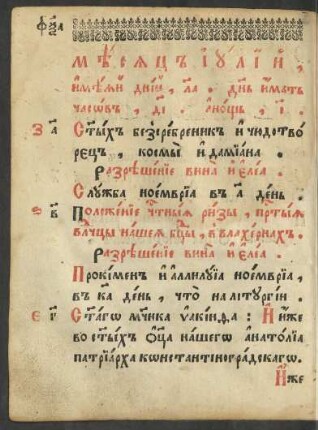 мѣсѧцъ і҆ꙋлїй,
и҆мѣѧй дні́й, ла. днь и҆мать
часѡвъ, ді. А҆нощь, і.
З а҃ Ст҃ыхъ безсребреникъ и҆ чꙋдотво
рецъ, космы̀ и҆ дамїана.
Разрѣшенїе вина и҆ є҆леа.
Слꙋжба ноемврїа въ а҃ день.
Ѕ в҃ Положенїе чⷭтныѧ ризы, прⷭтыѧ
влⷣчцы нашеѧ бцⷣы, в̾ влахернахъ.
Разрѣшенїе вина̀ и҆ є҆леа.
Прокименъ и҆ а҆ллилꙋїа ноемврїа,
въ ка день, что̀ на літꙋргїи.
Є г҃ Ст҃агѡ мⷱника ѵ҆акинѳа: И҆ и҆же
во ст҃ыхъ ѻ҆ц҃а нашегѡ а҆натолїа
патрїарха кѡнстантіноградскагѡ.
И҆же